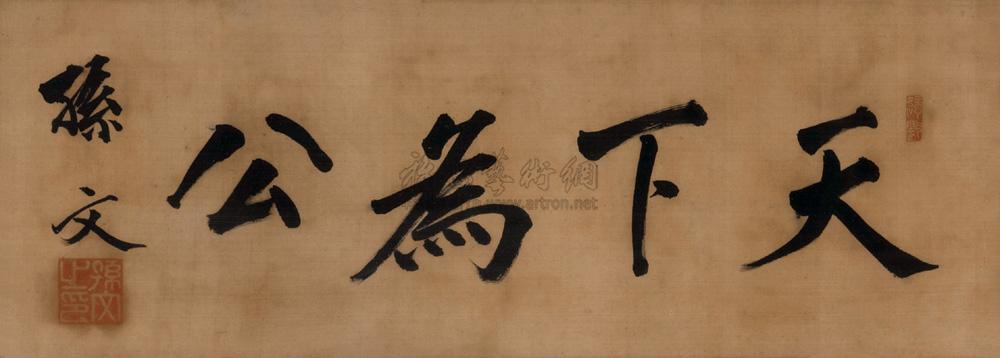 天下為公
孫文
孫文之印
雅昌藝術網
www.artron.net